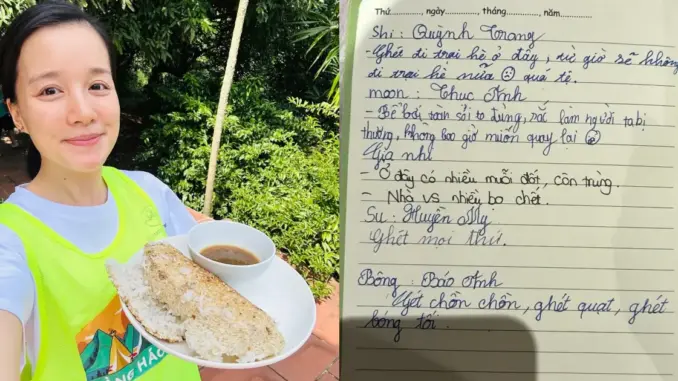 Thứ..........., ngày............, tháng............, năm............
Shi: Quỳnh Trang
- Ghét đi trại hè ở đây, từ giờ sẽ không
đi trại hè nữa ☹ quá tệ.
moon: Thục Anh
- Bể bơi toàn sỏi to đùng, sắc làm người ta bị
thương, không bao giờ muốn quay lại
Gia nhi
- Ở đây có nhiều muỗi đốt, côn trùng.
- Nhà vs nhiều bọ chét.
Su: Huyền My
Ghét mọi thứ.
Bông: Bảo Anh
Ghét chồn chồn, ghét quạt, ghét
bóng tối.
ÀNG HÁO